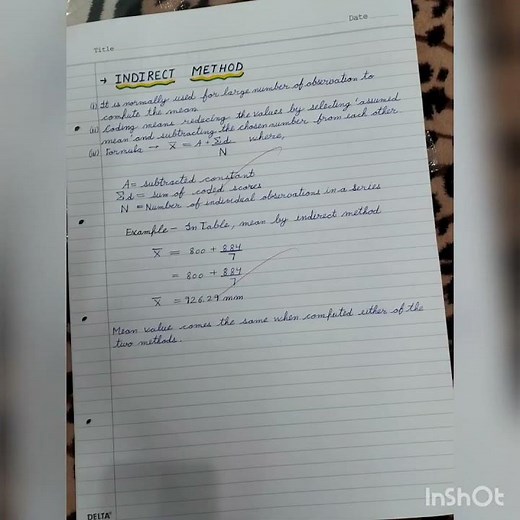 Title
Date
→ INDIRECT METHOD
(i) It is normally used for large number of observation to
compute the mean.
(ii) Coding means reducing the values by selecting 'assumed
mean' and subtracting the chosen number from each other
(iii) Formula → X̅ = A + Σd/N where,
A = subtracted constant
Σd = sum of coded scores
N = Number of individual observations in a series
Example - In Table, mean by indirect method
X̅ = 800 + 884/7
= 800 + 884/7
X̅ = 926.29 mm
Mean value comes the same when computed either of the
two methods.
DELTA
InShOt